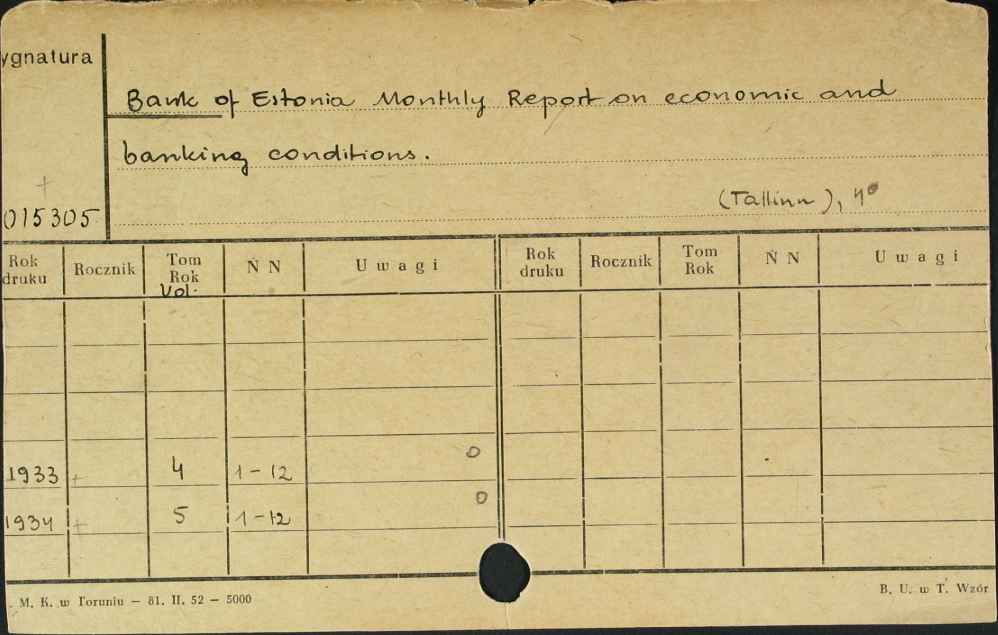 ygnatura
Bank of Estonia Monthly Report on economic and
banking conditions.
+
015305
(Tallinn), 4°
Rok druku Rocznik Tom Rok Vol. N N Uwagi Rok druku Rocznik Tom Rok N N Uwagi
1933 + 4 1-12 0
1934 + 5 1-12 0
M. K. w Toruniu — 81. II. 52 — 5000
B. U. w T. Wzór